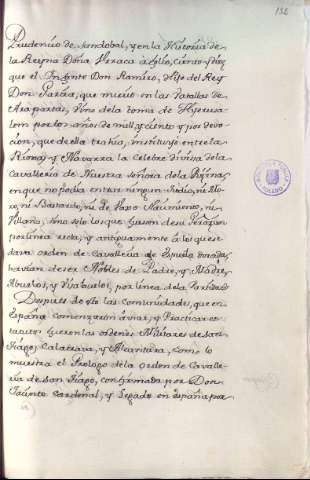 132
Prudencio de Sandobal, y en la Historia de
la Reyna Doña Vrraca à folio, ciento, y diez
que el Infante Don Ramiro, Hijo del Rey
Don Garcia, que murio en las Vatallas de
vino dela toma de Hierusa-
lem por los años de mill, y ciento y por devo-
cion, que de ella trahia, instituyo entre la
Rioxa, y Navarra la celebre Divisa de la
Cavalleria de Nuestra señora de la
en que no podia entrar ningun Judio, ni Mo-
ro, ni Bastardo, ni de Vaxo Nacimiento, ni
Villano, sino solo los que fuesen de su
por linea recta, y antiguamente à los que se
dava orden de Cavalleria de Espuela Dorada
havian de ser Nobles de Padre, y Madre,
Abuelos, y Visabuelos, por linea de la
Despues de esto las Comunidades, que en
España comenzaron à vsar, y Practicar es-
tatutos fueron las ordenes Militares de san-
tiago, Calatrava, y Alcantara, como lo
muestra el Prologo de la orden de Cavalle-
ria de san tiago, confirmada por Don
Jacinto Cardenal, y Legado en España por